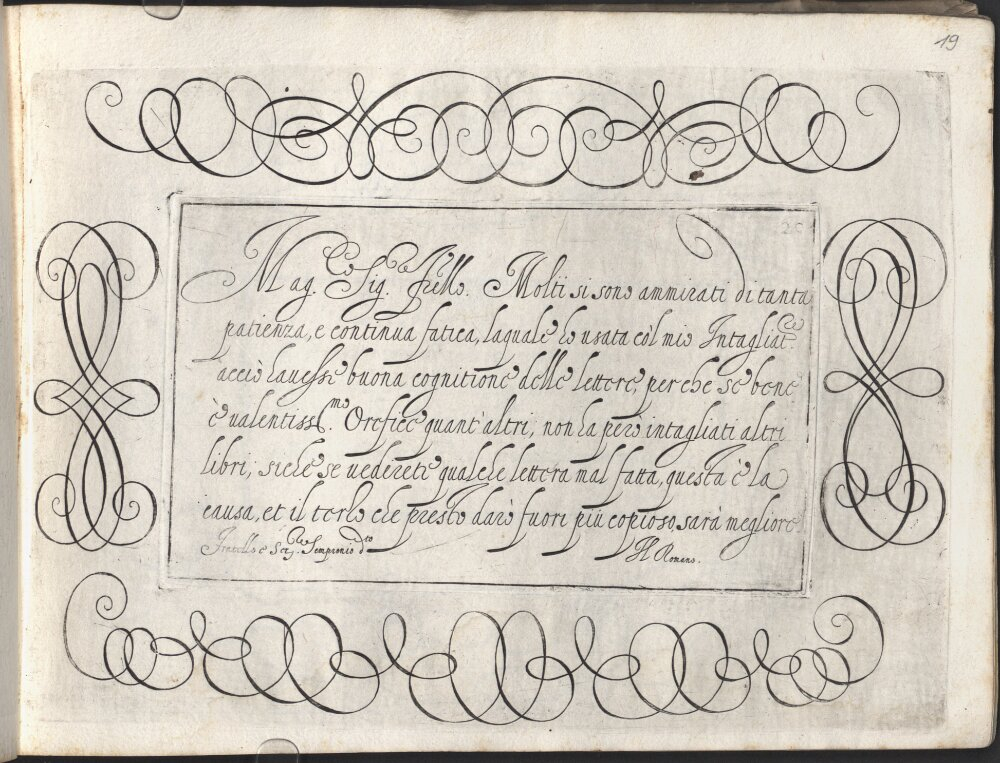 19
25
Mag.co Sig.re Frello. Molti si sono ammirati di tanta
patienza, e continua fatica, laquale ho usata cól mio Intagliat.re
acciò havesse buona cognitione delle lettere, perche se bene
è valentiss.mo Orefice quant'altri, non ha però intagliati altri
libri, siche se vederete qualche lettera mal fatta, questa è la
causa, et il terzo che presto darò fuori più copioso sarà megliore
Fratello e Ser.re Sempronio d.to
H Romano.